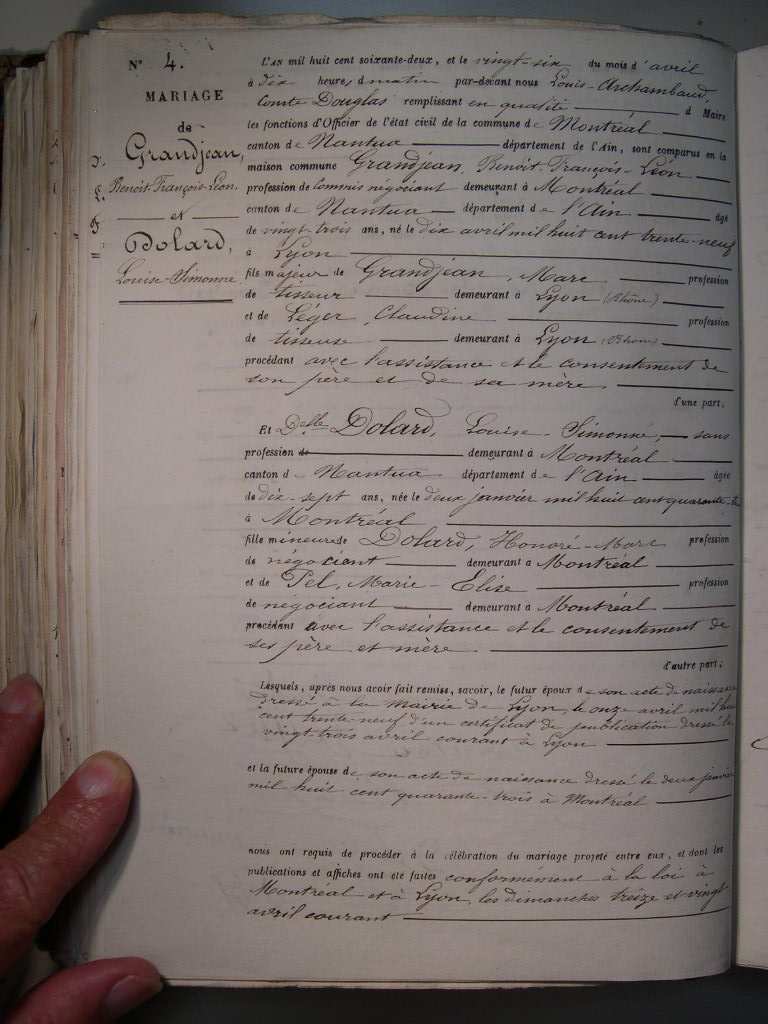 N° 4.
MARIAGE
de
Grandjean,
Benoit-François-Léon.
et
Dolard,
Louise-Simonne.
L'AN mil huit cent soixante-deux, et le vingt-six du mois d'avril
à dix heures d matin par-devant nous Louis-Archambaud,
Comte Douglas remplissant en qualité d Maire
les fonctions d'Officier de l'état civil de la commune de Montréal
canton de Nantua département de l'Ain, sont comparus en la
maison commune Grandjean, Benoit-François-Léon
profession de Commis négociant demeurant à Montréal
canton de Nantua département de l'Ain âgé
de vingt-trois ans, né le dix avril mil huit cent trente-neuf
à Lyon
fils majeur de Grandjean, Marc profession
de tisseur demeurant à Lyon (Rhône)
et de Léger, Claudine profession
de tisseuse demeurant à Lyon (Rhône)
procédant avec l'assistance et le consentement de
son père et de sa mère.
d'une part;
Et Delle Dolard, Louise-Simonne, sans
profession de demeurant à Montréal
canton d Nantua département de l'Ain âgée
de dix-sept ans, née le deux janvier mil huit cent quarante-
à Montréal
fille mineure de Dolard, Honoré-Marc profession
de négociant demeurant à Montréal
et de Pel, Marie-Elise profession
de négociant demeurant à Montréal
procédant avec l'assistance et le consentement de
ses père et mère.
d'autre part;
Lesquels, après nous avoir fait remise, savoir, le futur époux de son acte de naissance
dressé à la Mairie de Lyon, le onze avril mil huit
cent trente-neuf d'un certificat de publication dressé le
vingt-trois avril courant à Lyon
et la future épouse de son acte de naissance dressé le deux janvier
mil huit cent quarante-trois à Montréal
nous ont requis de procéder à la célébration du mariage projeté entre eux, et dont les
publications et affiches ont été faites conformément à la loi à
Montréal et à Lyon, les dimanches treize et vingt
avril courant